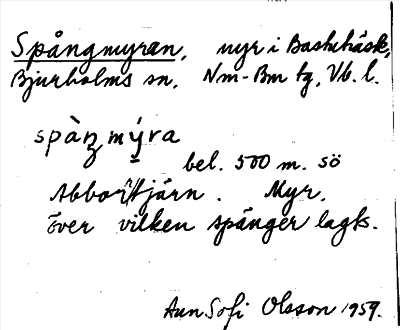 Spångmyran, myr i Bastuträsk,
Bjurholms sn, Nm-Bm tg, Vb. l.
spàŋmýra
bel. 500 m. sö
Abborrtjärn. Myr,
över vilken spänger lagts.
Ann Sofi Olsson 1959.